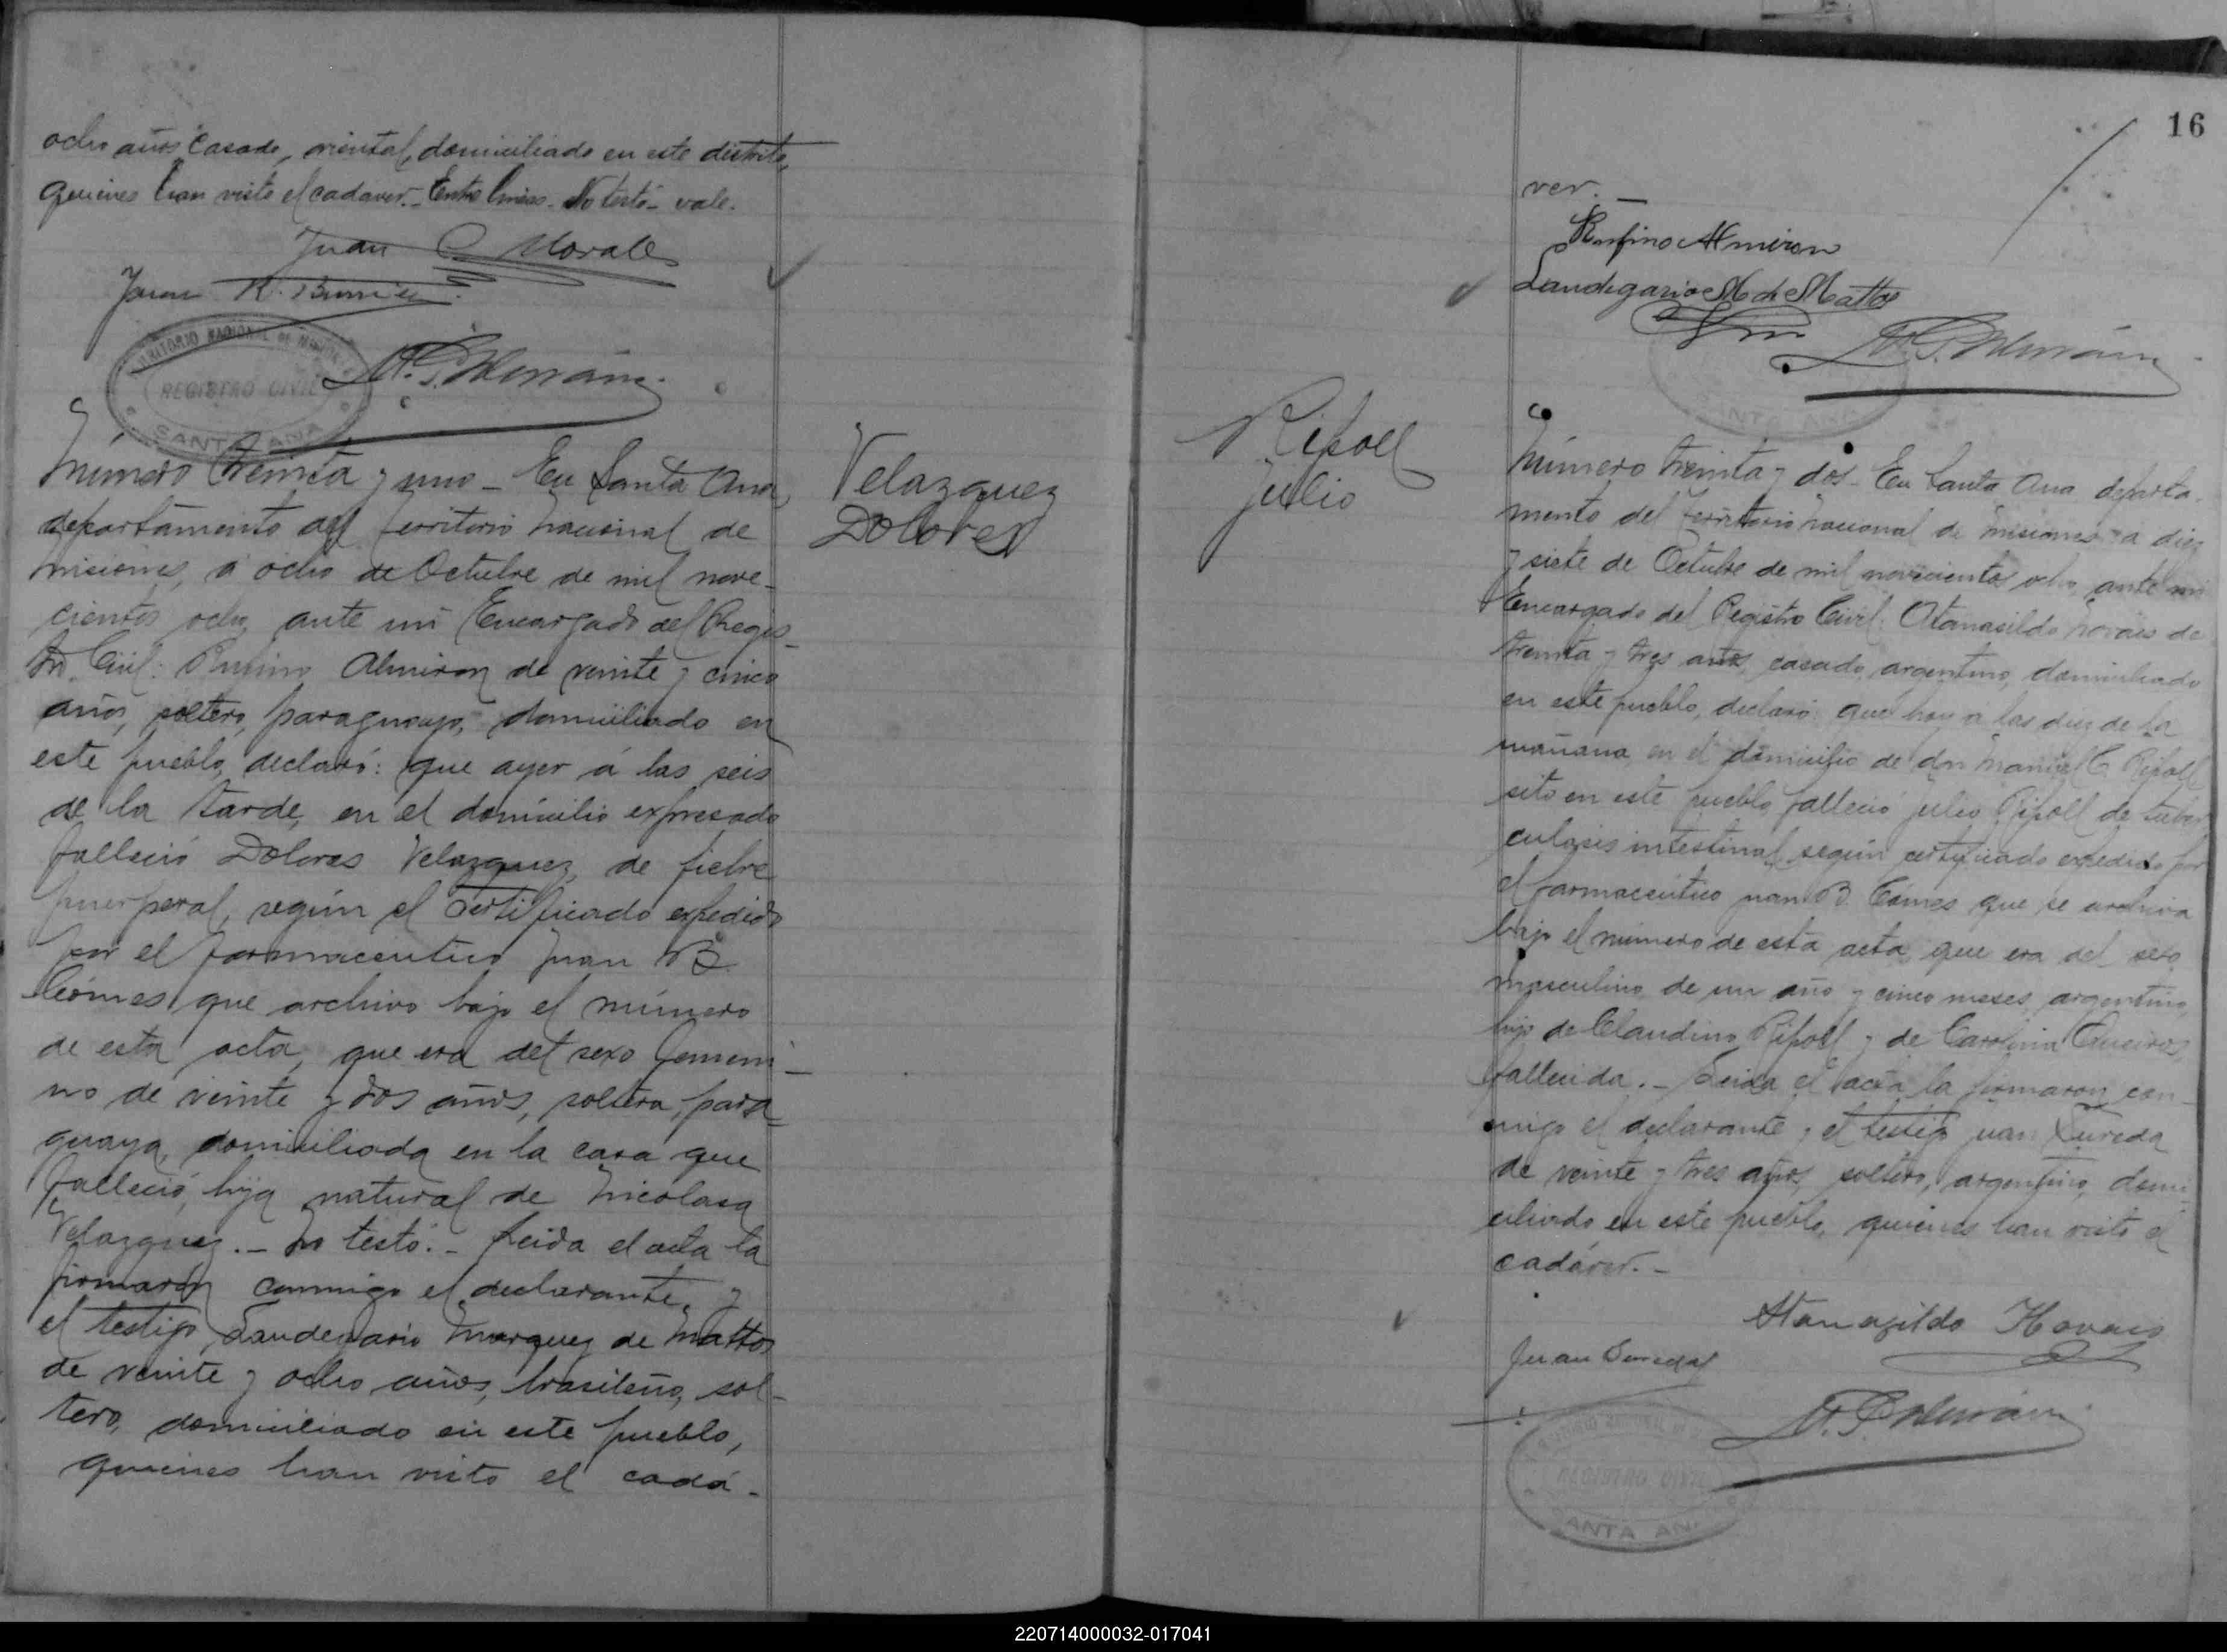 ocho años, casado, oriental, domiciliado en este distrito,
quienes han visto el cadaver.- Entre lineas- No testó- vale.
Juan C Morales
Juan R.
TERRITORIO NACIONAL DE MISIONES
REGISTRO CIVIL
SANTA ANA
Número treinta y uno - En Santa Ana,
departamento del territorio nacional de
Misiones, á ocho de Octubre de mil nove-
cientos ocho, ante mi Encargado del Regis-
tro Civil: Rufino Almiron de veinte y cinco
años, soltero, paraguayo, domiciliado en
este pueblo, declaró: que ayer á las seis
de la tarde, en el domicilio expresado
falleció Dolores Velazquez, de fiebre
puerperal, según el certificado expedido
por el farmaceutico Juan B.
Gómes que archivo bajo el número
de esta acta, que era del sexo femeni-
no de veinte y dos años, soltera, para-
guaya, domiciliada en la casa que
falleció, hija natural de Nicolasa
Velazquez.- No testó.- Leida el acta la
firmarón conmigo el declarante y
el testigo, Laudegario Marquez de Mattos
de veinte y ocho años, brasileño, sol-
tero, domiciliado en este pueblo,
quienes han visto el cadá-
Velazquez
Dolores
16
ver.-
Rufino Almiron
Laudegario M de Mattos
SANTA ANA
Ripoll
Julio
Número treinta y dos- En Santa Ana departa-
mento del territorio nacional de Misiones á diez
y siete de Octubre de mil novecientos ocho, ante mi
Encargado del Registro Civil: Atanasildo Novaes de
treinta y tres años, casado, argentino, domiciliado
en este pueblo, declaró: que hoy á las diez de la
mañana, en el domicilio de don Manuel C Ripoll
sito en este pueblo, falleció Julio Ripoll de tuber
culosis intestinal, según certificado expedido por
el farmaceútico Juan B. Gómes que se archiva
bajo el número de esta acta, que era del sexo
masculino, de un año y cinco meses, argentino,
hijo de Claudino Ripoll y de Carolina Queiros,
fallecida.- Leida el acta la firmaron con-
migo el declarante y el testigo Juan Sureda
de veinte y tres años, soltero, argentino, domi-
ciliado en este pueblo, quienes han visto el
cadáver.-
Atanagildo Novaes
Juan Sureda
REGISTRO CIVIL
SANTA ANA
220714000032-017041